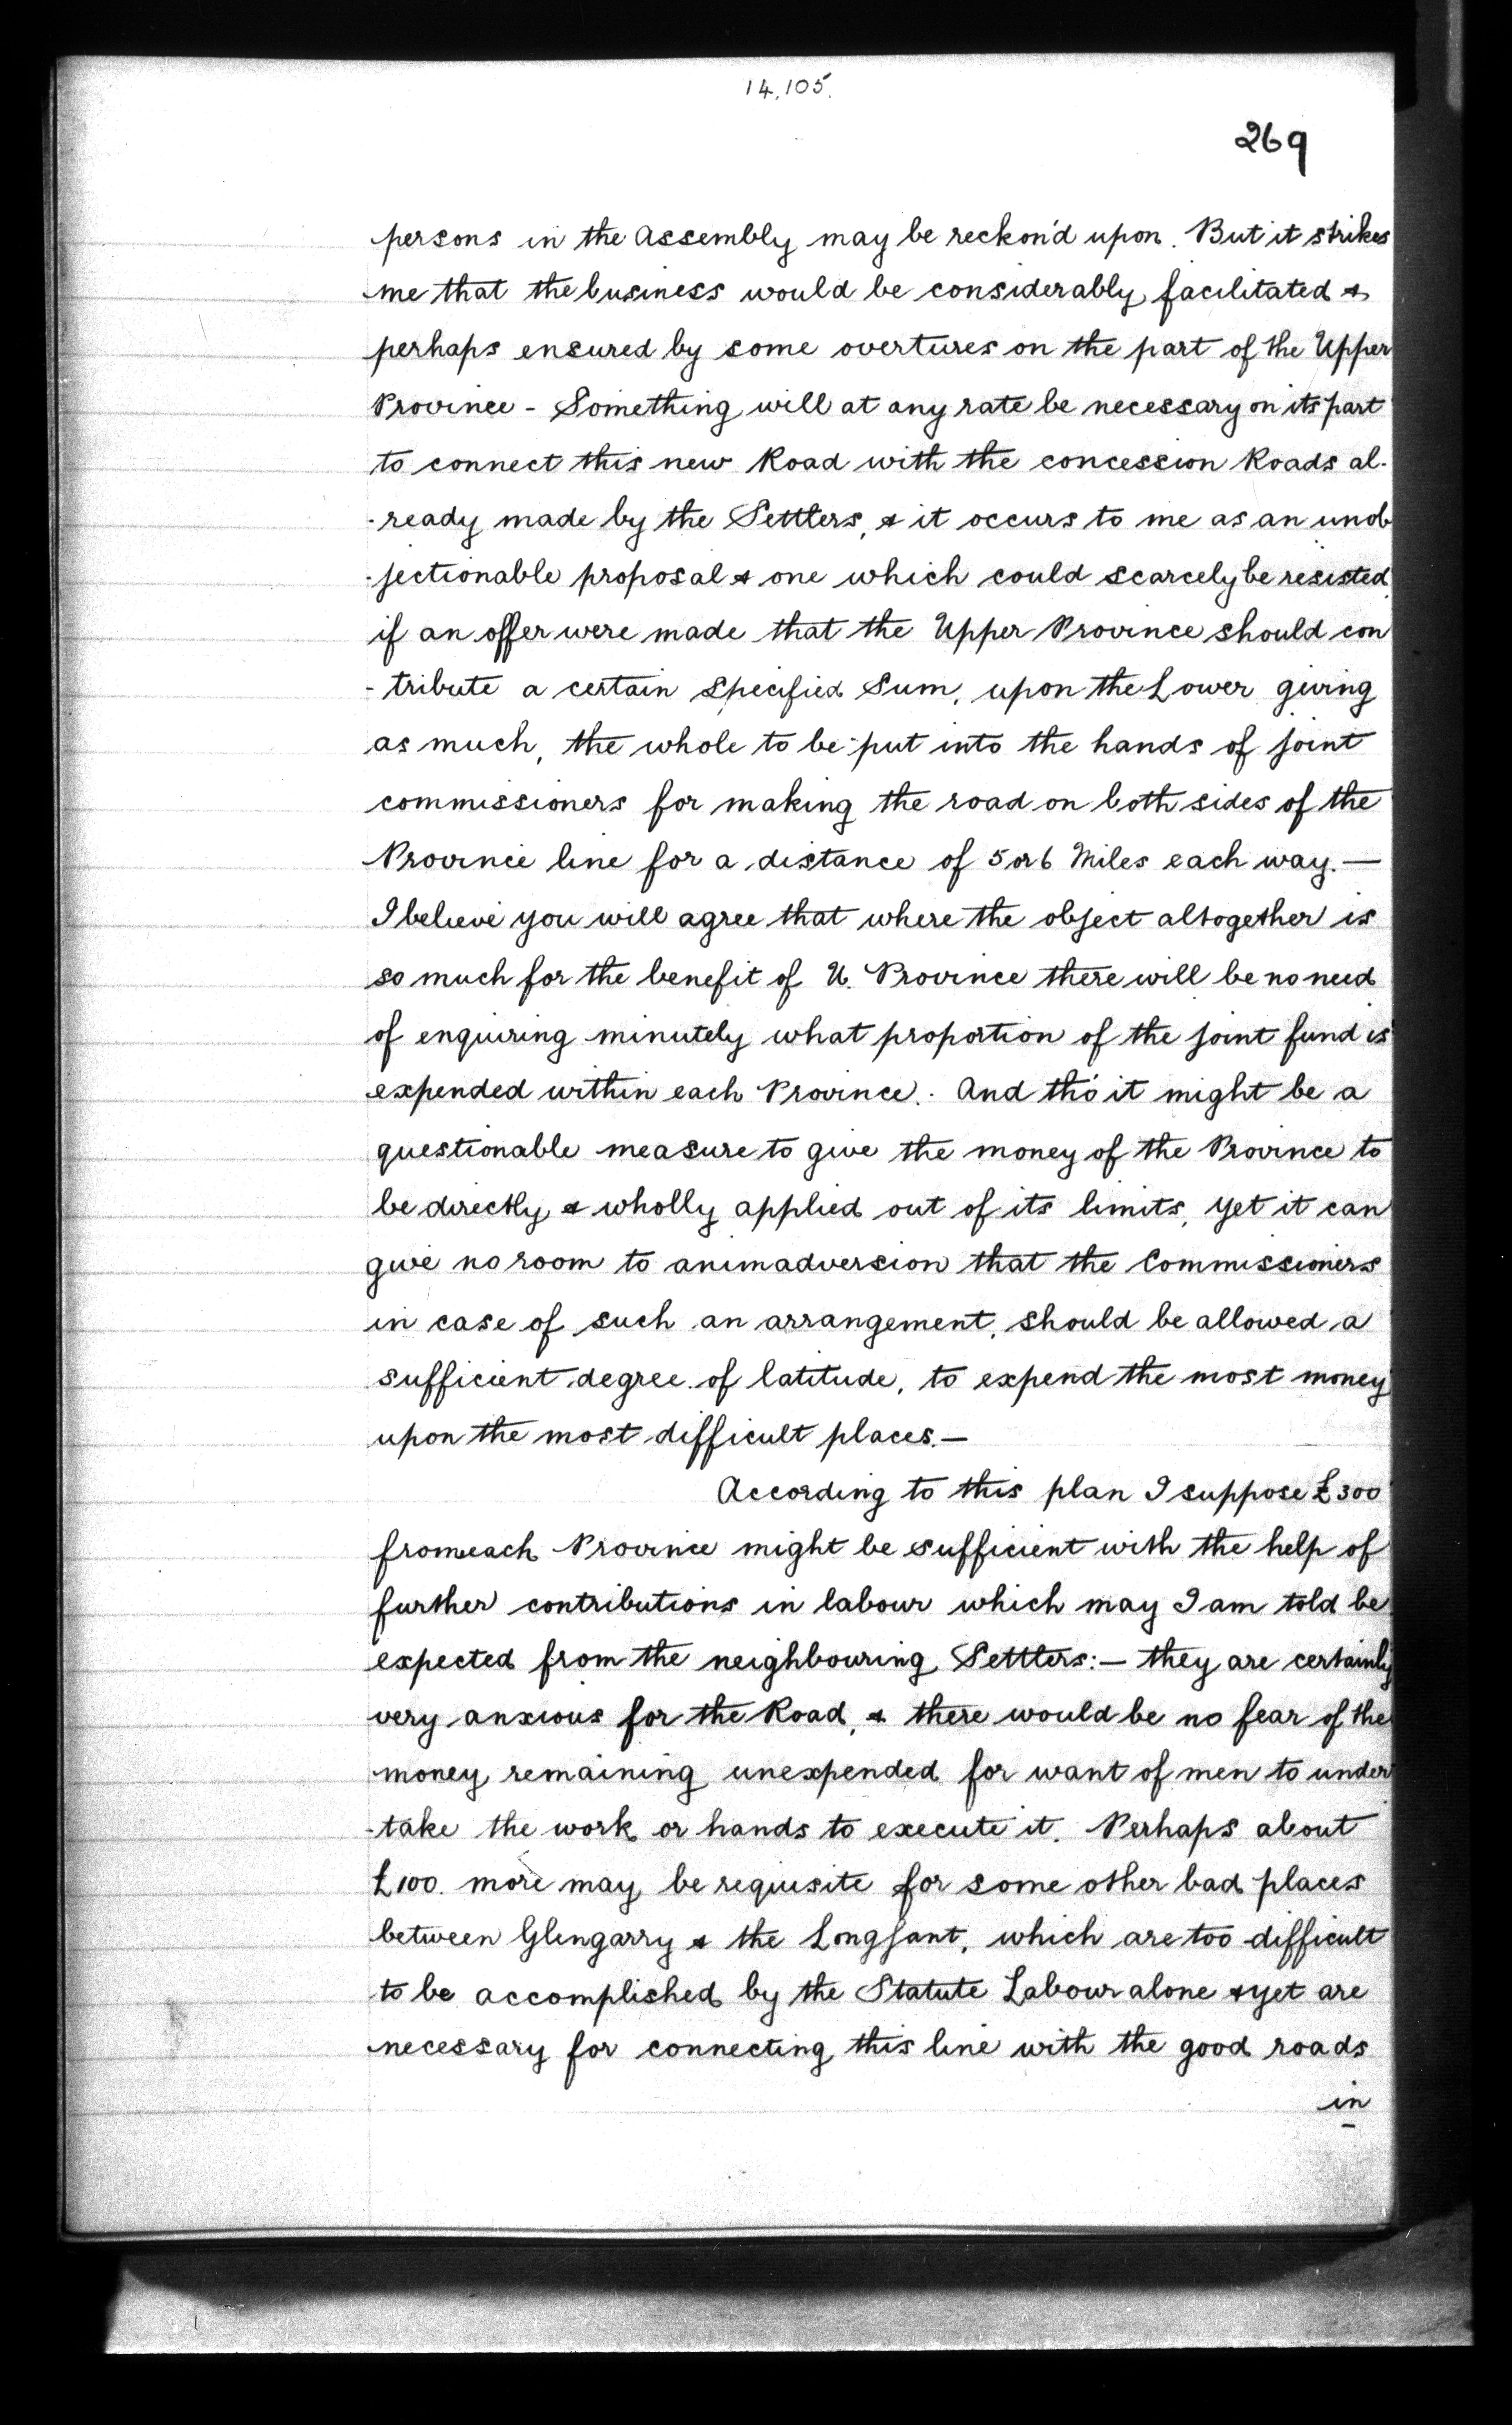 14,105.
269
persons in the Assembly may be reckon'd upon. But it strikes
me that the business would be considerably facilitated &
perhaps ensured by some overtures on the part of the Upper
Province - Something will at any rate be necessary on its part
to connect this new Road with the concession Roads al-
-ready made by the Settlers, & it occurs to me as an unob
-jectionable proposal & one which could scarcely be resisted,
if an offer were made that the Upper Province should con
-tribute a certain Specified Sum, upon the Lower giving
as much, the whole to be put into the hands of joint
commissioners for making the road on both sides of the
Province line for a distance of 5 or 6 Miles each way. —
I believe you will agree that where the object altogether is
so much for the benefit of U. Province there will be no need
of enquiring minutely what proportion of the joint fund is
expended within each Province. And tho' it might be a
questionable measure to give the money of the Province to
be directly & wholly applied out of its limits, yet it can
give no room to animadversion that the Commissioners
in case of such an arrangement, should be allowed a
sufficient degree of latitude, to expend the most money
upon the most difficult places. —
According to this plan I suppose £300
from each Province might be sufficient with the help of
further contributions in labour which may I am told be
expected from the neighbouring Settlers: — they are certainly
very anxious for the Road, & there would be no fear of the
money remaining unexpended for want of men to under
-take the work or hands to execute it. Perhaps about
£100. more may be requisite for some other bad places
between Glengarry & the Longsant, which are too difficult
to be accomplished by the Statute Labour alone & yet are
necessary for connecting this line with the good roads
in